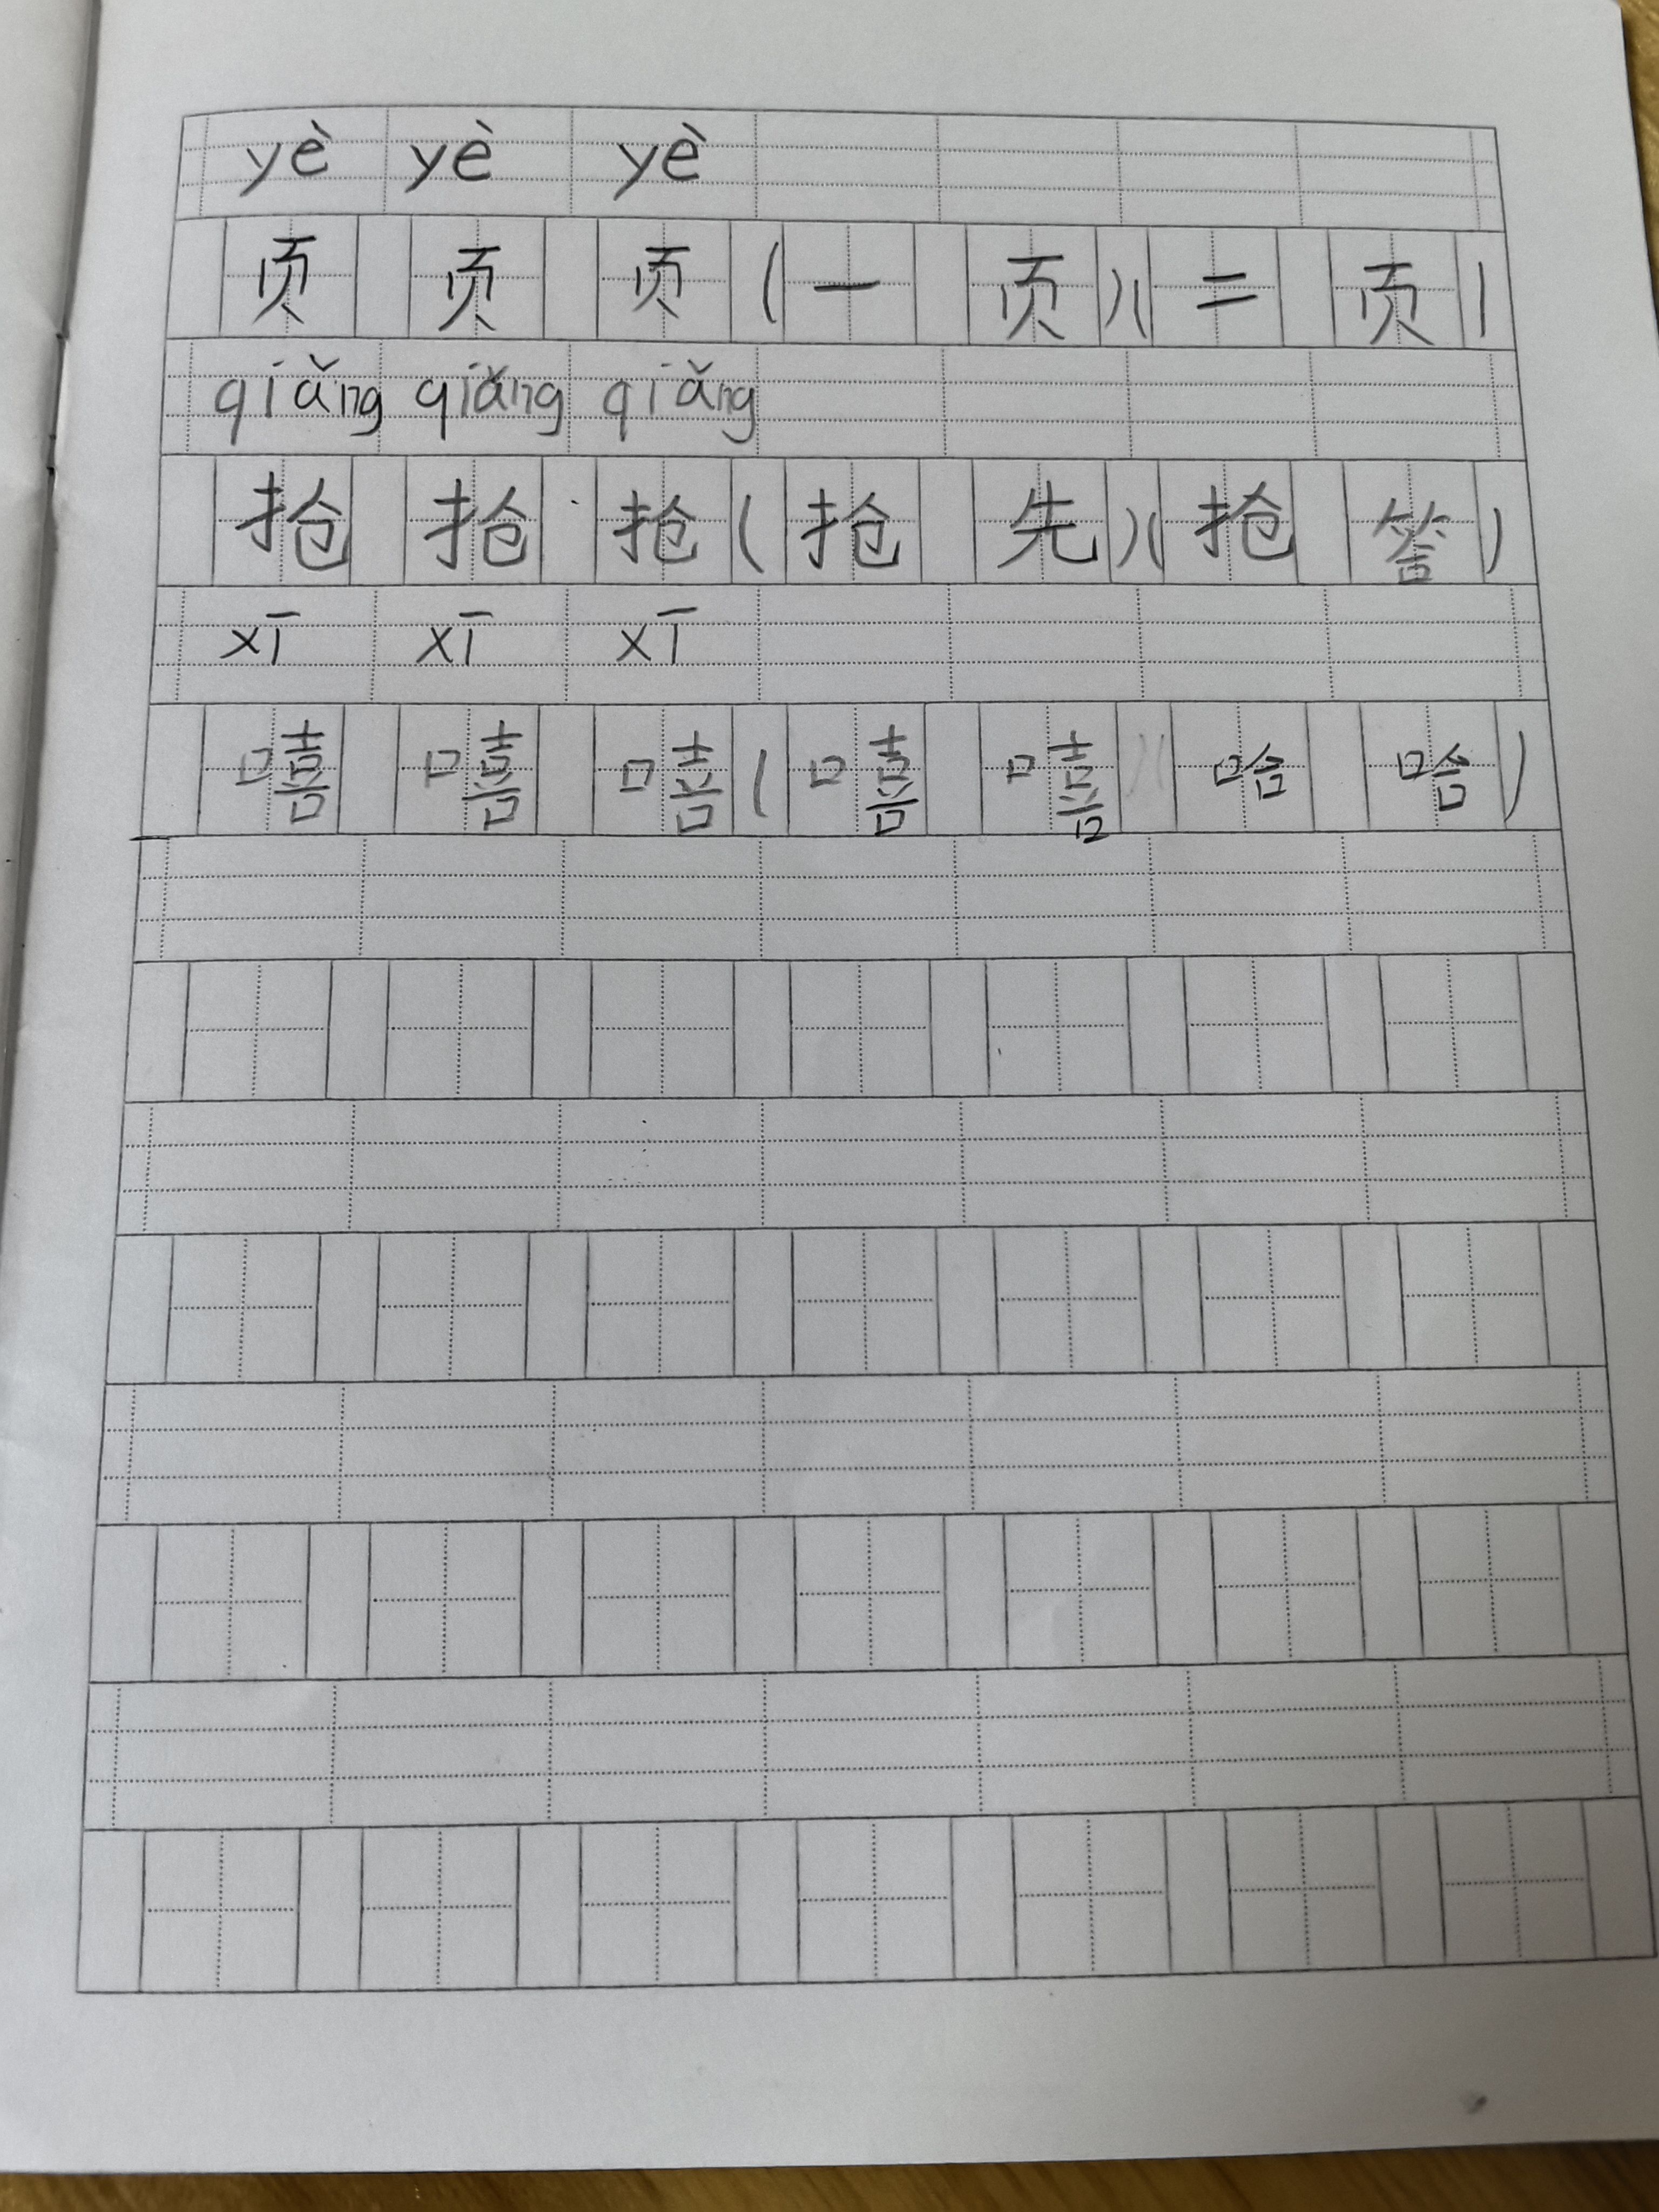 yè yè yè
页 页 页 (一 页)(二 页)
qiǎng qiǎng qiǎng
抢 抢 抢 (抢 先)(抢 答)
xī xī xī
嘻 嘻 嘻 (嘻 嘻 哈 哈)